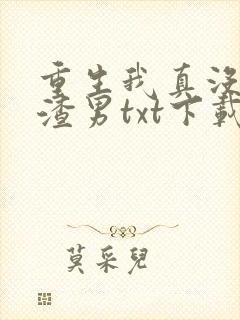 重生我真没
渣男txt下载
莫采儿